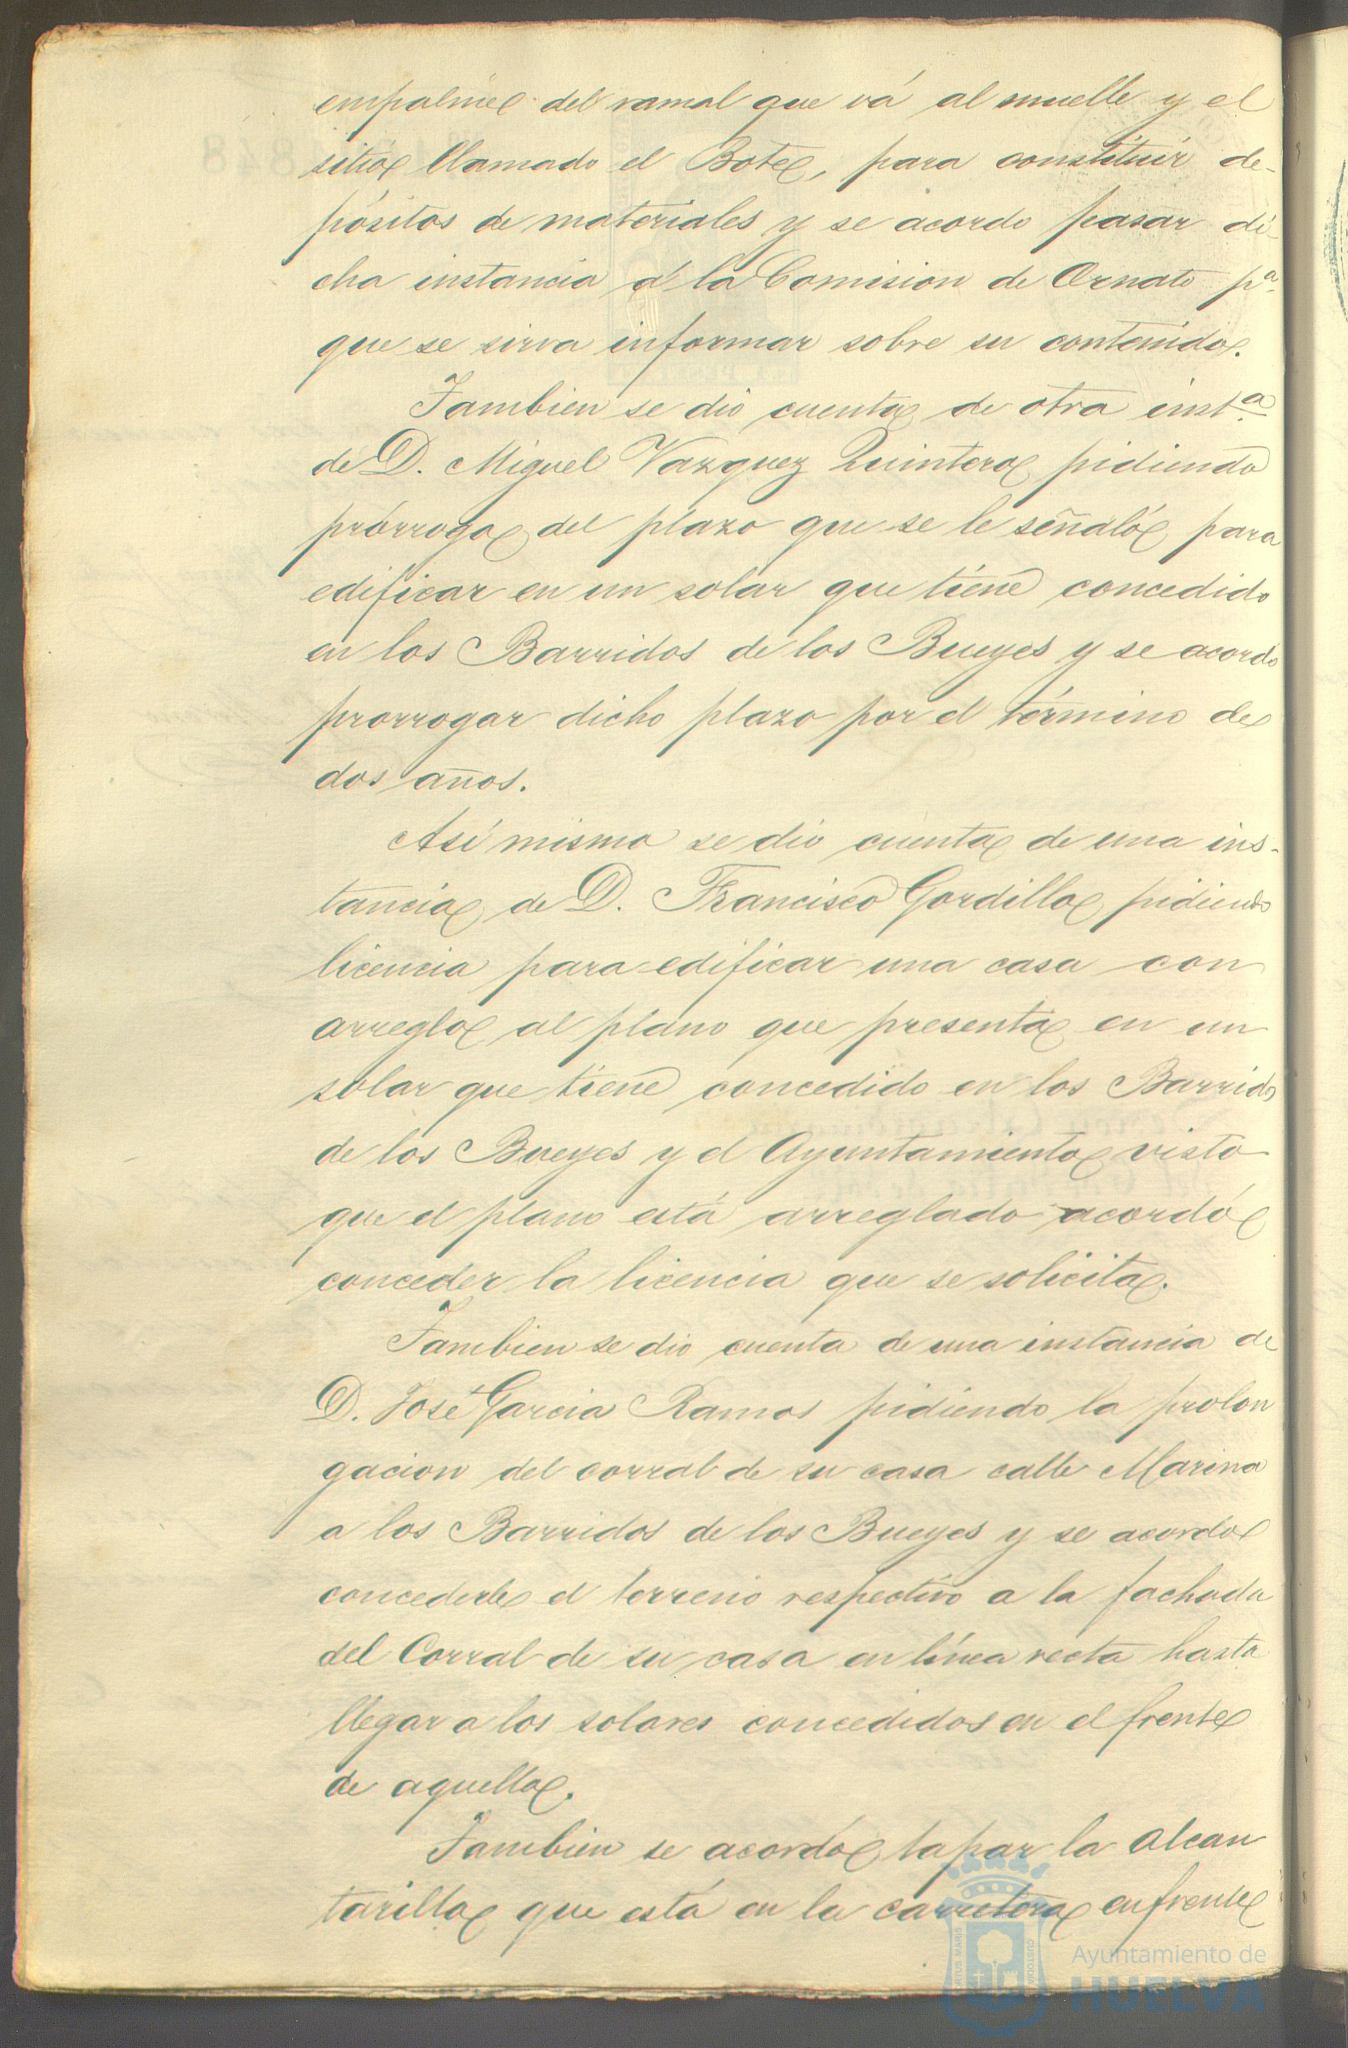 empalme del ramal que vá al muelle y el
sitio llamado el Bote, para constituir de-
pósitos de materiales y se acordo pasar di-
cha instancia a la Comision de Ornato pª
que se sirva informar sobre su contenido.
Tambien se dio cuenta de otra instª
de D. Miguel Vazquez Quintero pidiendo
prórroga del plazo que se le señaló para
edificar en un solar que tiene concedido
en los Barridos de los Bueyes y se acordo
prorrogar dicho plazo por el término de
dos años.
Así mismo se dio cuenta de una ins-
tancia de D. Francisco Gordillo pidiendo
licencia para edificar una casa con
arreglo al plano que presenta en un
solar que tiene concedido en los Barridos
de los Bueyes y el Ayuntamiento visto
que el plano está arreglado acordó
conceder la licencia que se solicita.
Tambien se dio cuenta de una instancia de
D. José Garcia Ramos pidiendo la prolon
gacion del corral de su casa calle Marina
a los Barridos de los Bueyes y se acordo
concederle el terreno respectivo a la fachada
del Corral de su casa en línea recta hasta
llegar a los solares concedidos en el frente
de aquella.
Tambien se acordó tapar la alcan
tarilla que está en la carretera enfrente
Ayuntamiento de
HUELVA